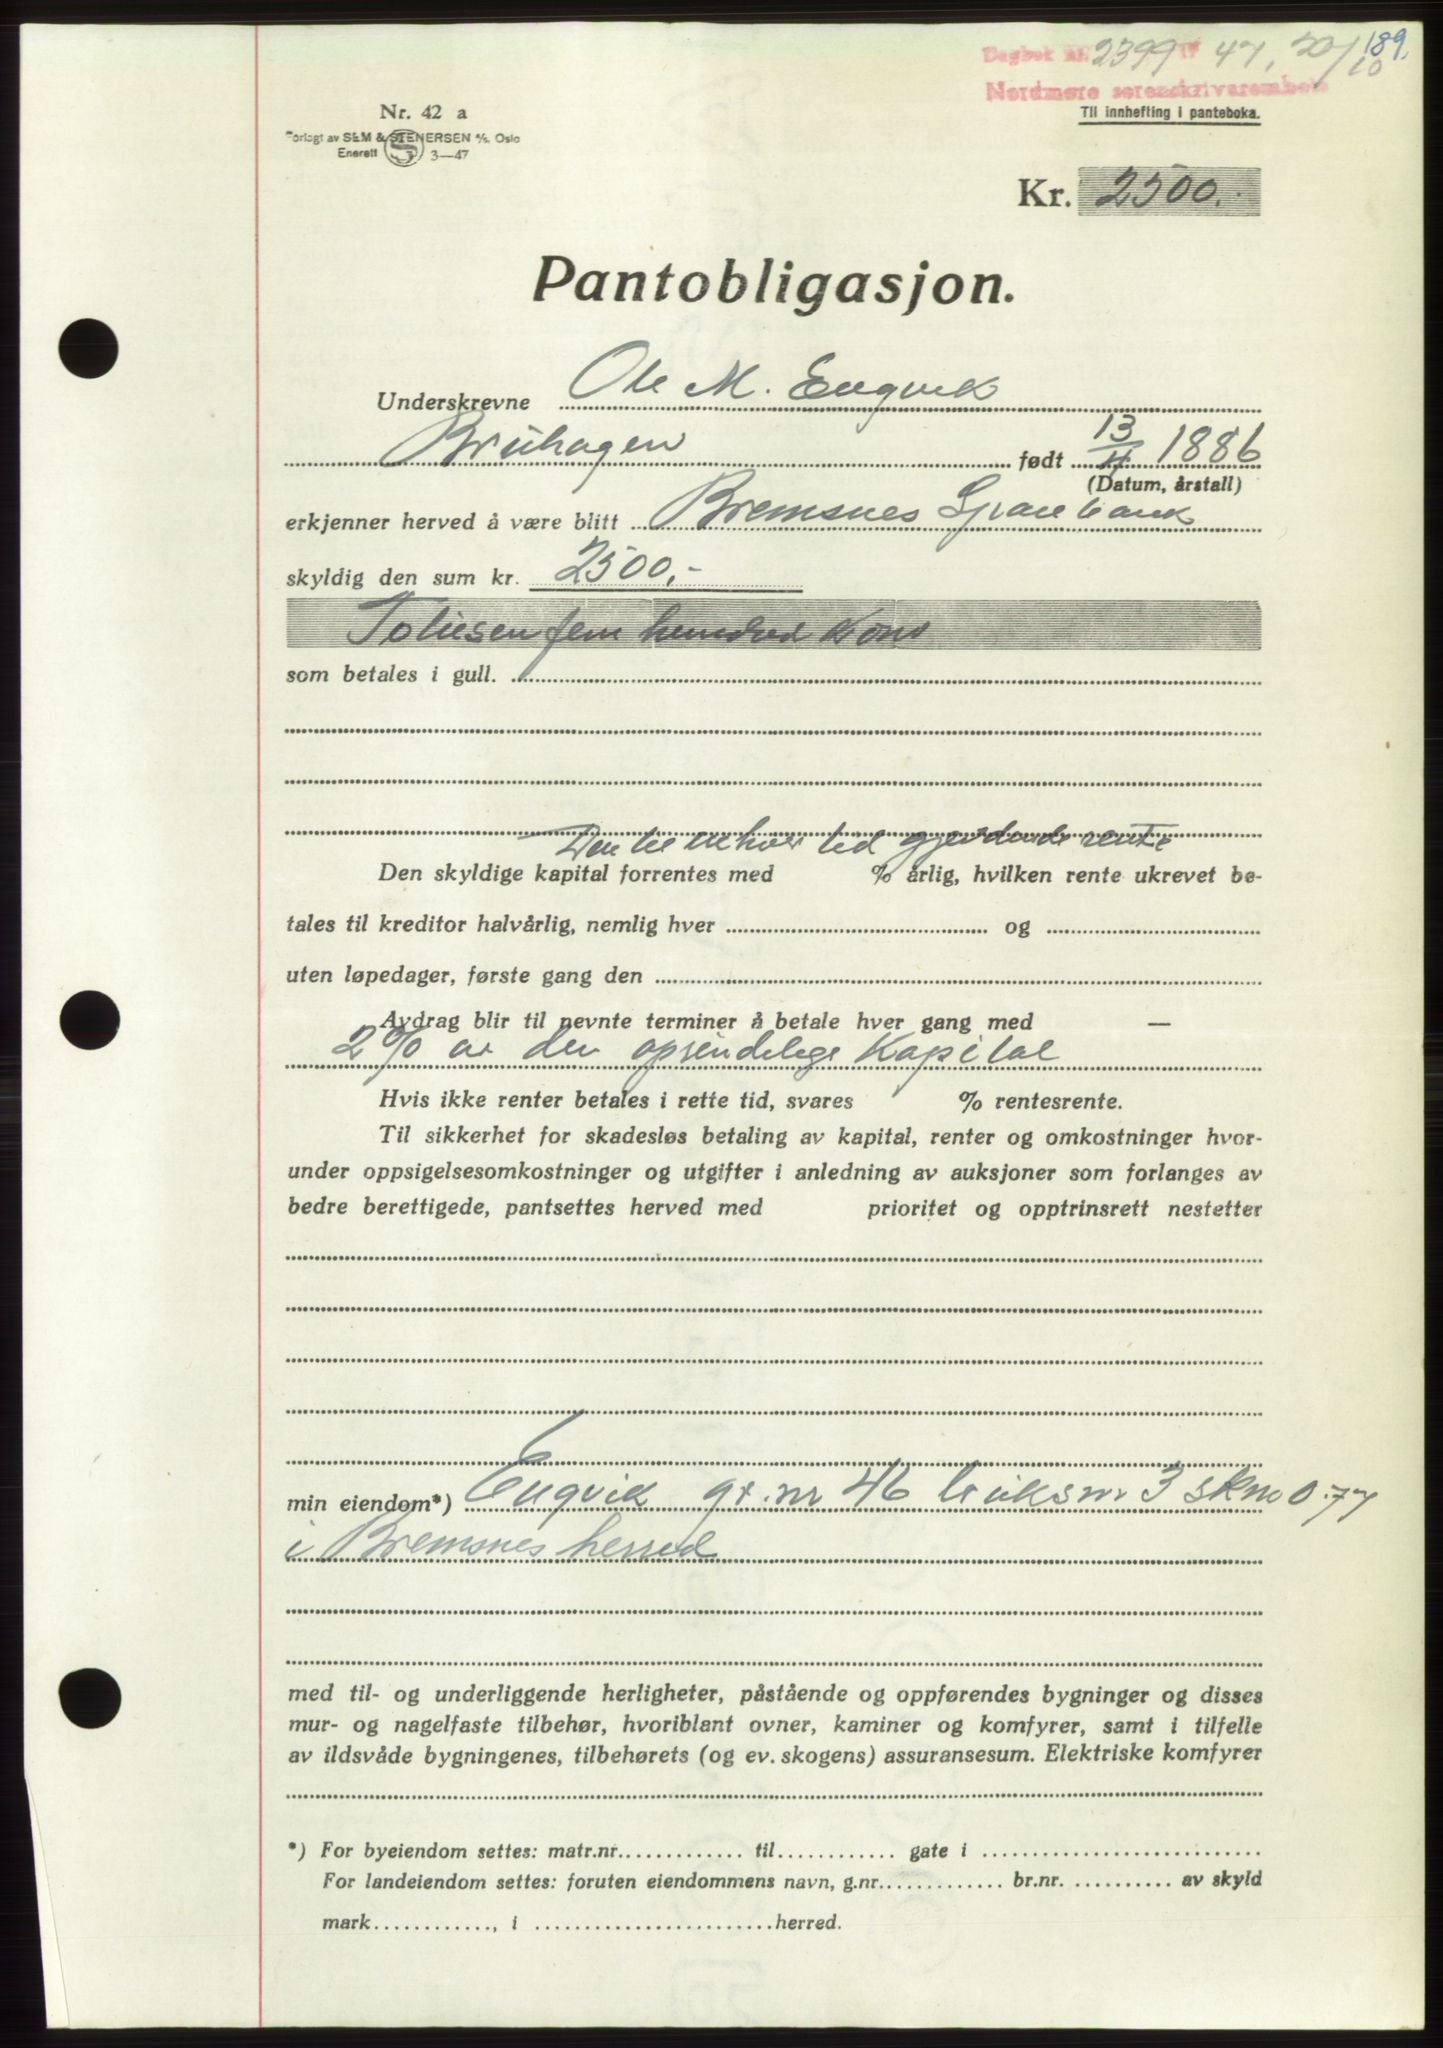 189.
Dagbok nr. 2399 19 47, 20/10
Nordmøre sorenskriverembete
Til innhefting i panteboka.
Nr. 42 a
Forlagt av SEM & STENERSEN A/S. Oslo
Enerett S 3—47
Kr. 2500.-
Pantobligasjon.
Underskrevne Ole M. Engvik
Bruhagen født 13/4 1886
(Datum, årstall)
erkjenner herved å være blitt Bremsnes Sparebank
skyldig den sum kr. 2500,-
Totusenfem hundred Kroner
som betales i gull.
Den til enhver tid gjeldende rente
Den skyldige kapital forrentes med % årlig, hvilken rente ukrevet be-
tales til kreditor halvårlig, nemlig hver og
uten løpedager, første gang den
Avdrag blir til nevnte terminer å betale hver gang med —
2% av den oprindelige Kapital
Hvis ikke renter betales i rette tid, svares % rentesrente.
Til sikkerhet for skadesløs betaling av kapital, renter og omkostninger hvor-
under oppsigelsesomkostninger og utgifter i anledning av auksjoner som forlanges av
bedre berettigede, pantsettes herved med prioritet og opptrinsrett nestetter
min eiendom*) Engvik gr.nr 46 bruksnr 3 skm 0.77
i Bremsnes herred
med til- og underliggende herligheter, påstående og oppførendes bygninger og disses
mur- og nagelfaste tilbehør, hvoriblant ovner, kaminer og komfyrer, samt i tilfelle
av ildsvåde bygningenes, tilbehørets (og ev. skogens) assuransesum. Elektriske komfyrer
*) For byeiendom settes: matr.nr. til gate i
For landeiendom settes: foruten eiendommens navn, g.nr. br.nr. av skyld
mark , i herred.